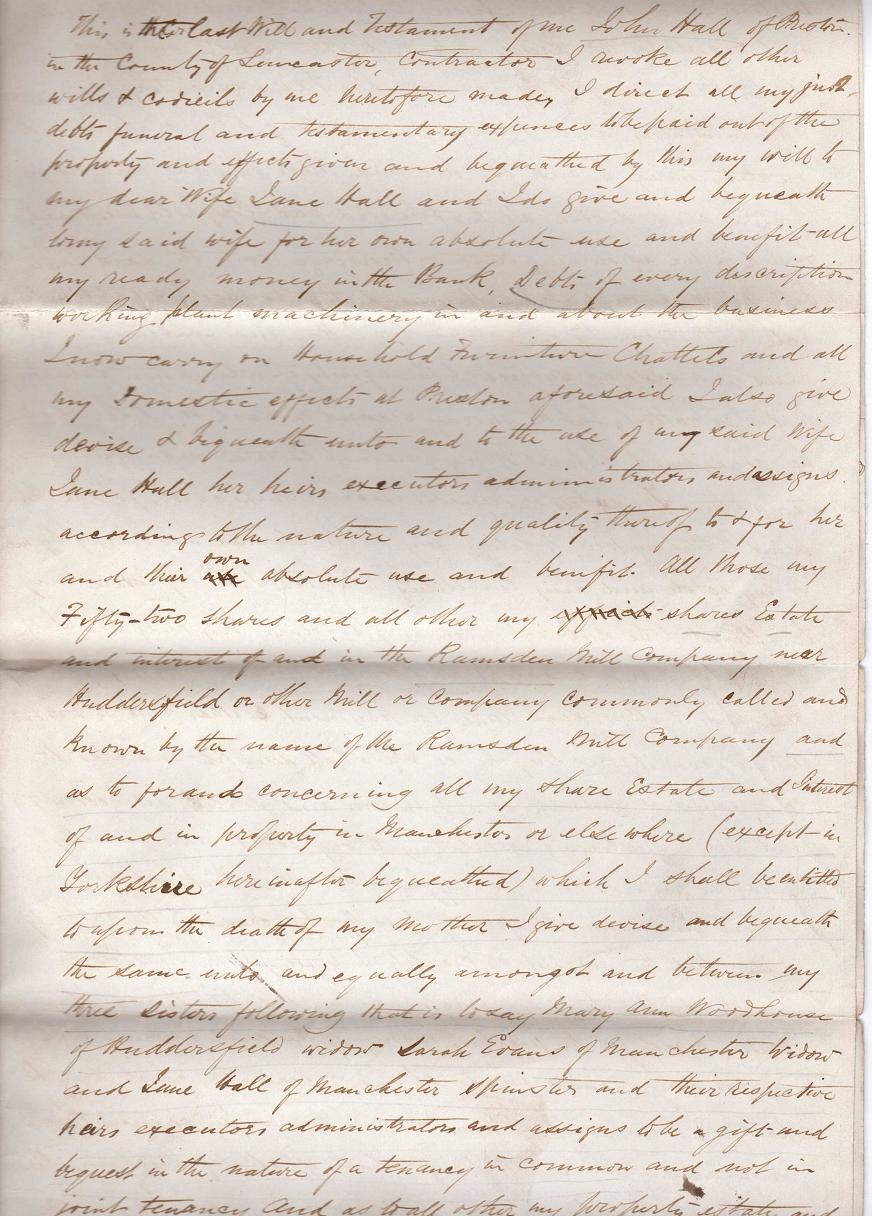 This is the last Will and Testament of me John Hall of Preston
in the County of Lancaster, Contractor I revoke all other
wills & codicils by me heretofore made, I direct all my just
debts funeral and testamentary expences to be paid out of the
property and effects given and bequeathed by this my will to
my dear Wife Jane Hall and I do give and bequeath
to my said wife for her own absolute use and benefit all
my ready money in the Bank, Debts of every description
working plant machinery in and about the business
I now carry on Household Furniture Chattels and all
my Domestic effects at Preston aforesaid I also give
devise & bequeath unto and to the use of my said Wife
Jane Hall her heirs executors administrators and assigns.
according to the nature and quality thereof to & for her
and their own absolute use and benifit. All those my
Fifty-two shares and all other my shares Estate
and interest of and in the Ramsden Mill Company near
Huddersfield or other Mill or Company commonly called and
known by the name of the Ramsden Mill Company and
as to for and concerning all my share Estate and Interest
of and in property in Manchester or elsewhere (except in
Yorkshire hereinafter bequeathed) which I shall be entitled
to upon the death of my mother I give devise and bequeath
the same unto and equally amongst and between my
three Sisters following that is to say Mary Ann Woodhouse
of Huddersfield widow Sarah Evans of Manchester Widow
and Jane Hall of Manchester Spinster and their respective
heirs executors administrators and assigns to be a gift and
bequest in the nature of a tenancy in common and not in
joint tenancy And as to all other my property estate and